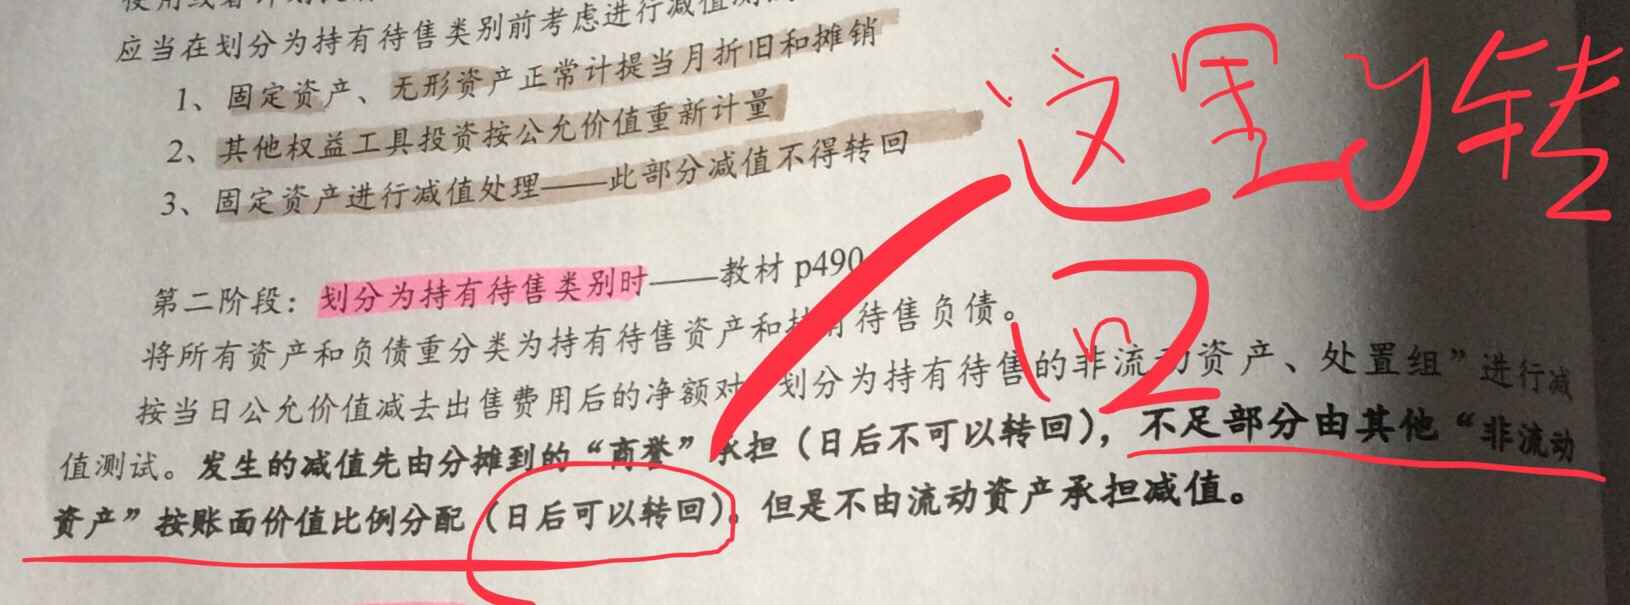 应当在划分为持有待售类别前考虑进行减值测
1、固定资产、无形资产正常计提当月折旧和摊销
2、其他权益工具投资按公允价值重新计量
3、固定资产进行减值处理——此部分减值不得转回
这里的转
回
第二阶段：划分为持有待售类别时——教材 p490
将所有资产和负债重分类为持有待售资产和持有待售负债。
按当日公允价值减去出售费用后的净额对“划分为持有待售的非流动资产、处置组”进行减
值测试。发生的减值先由分摊到的“商誉”承担（日后不可以转回），不足部分由其他“非流动
资产”按账面价值比例分配（日后可以转回）。但是不由流动资产承担减值。